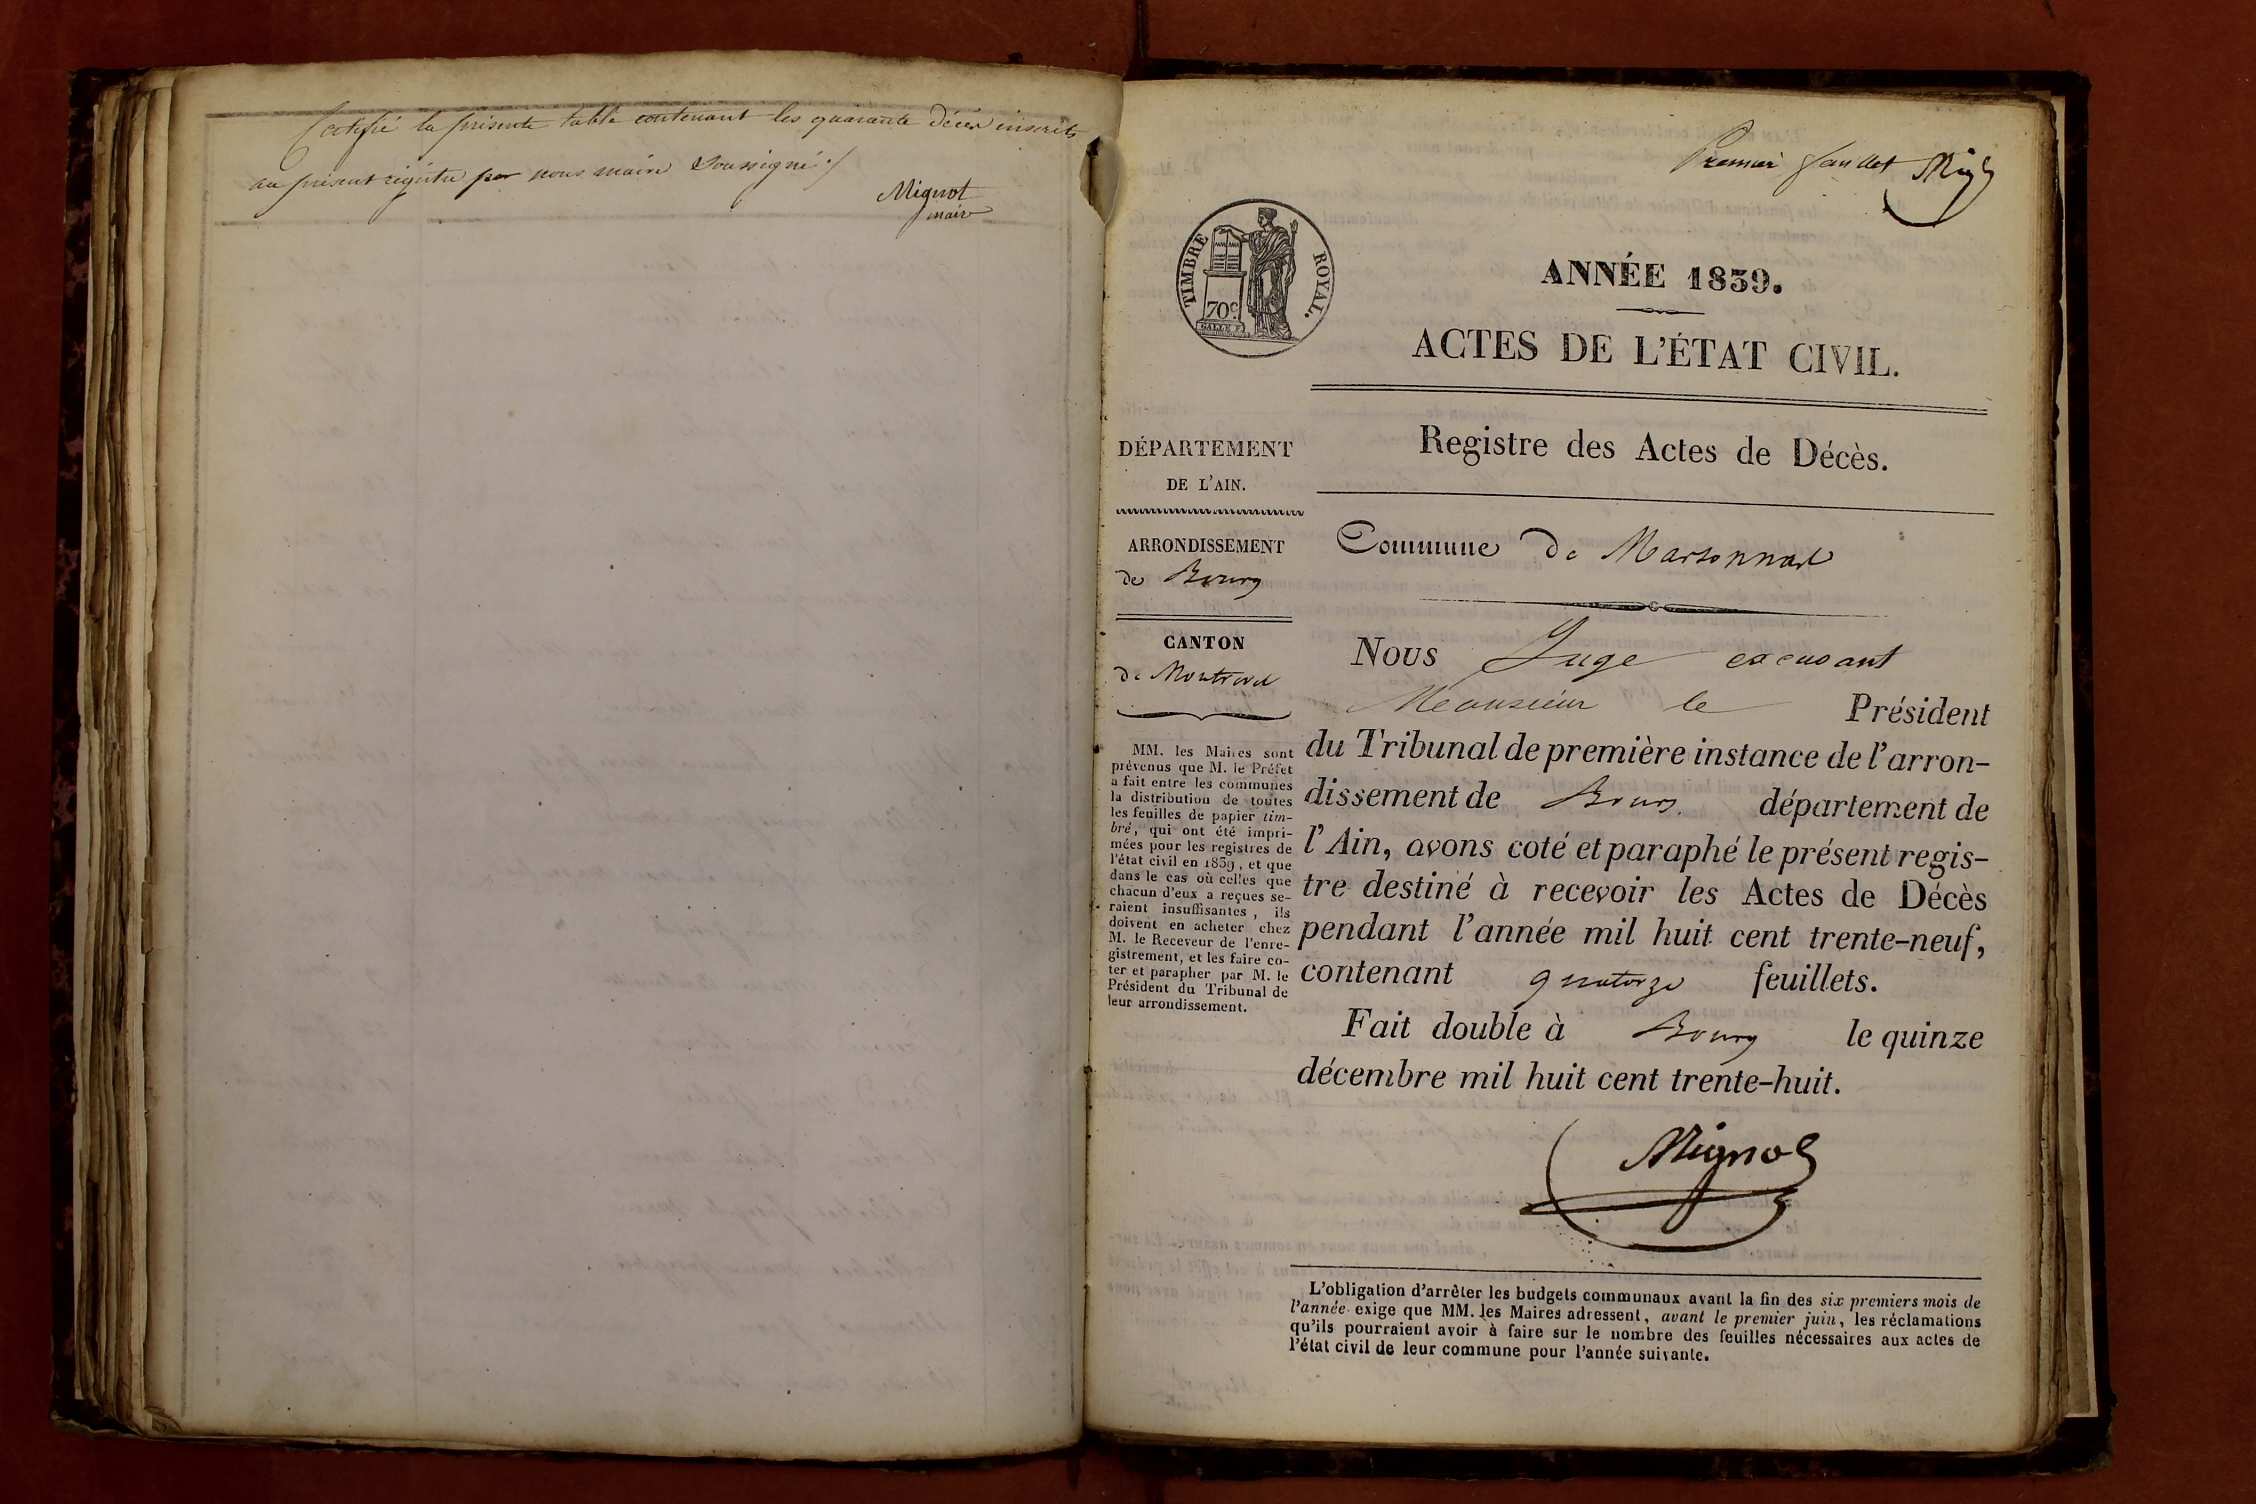 Certifié la présente table contenant les quarante décès inscrits
au présent régistre par nous maire soussigné ./
Mignot
maire
Premier feuillet Mig
TIMBRE ROYAL.
70 c.
ANNÉE 1839.
ACTES DE L'ÉTAT CIVIL.
DÉPARTEMENT
DE L'AIN.
ARRONDISSEMENT
de Bourg
CANTON
de Montrevel
MM. les Maires sont
prévenus que M. le Préfet
a fait entre les communes
la distribution de toutes
les feuilles de papier tim-
bré, qui ont été impri-
mées pour les registres de
l'état civil en 1839, et que
dans le cas où celles que
chacun d'eux a reçues se-
raient insuffisantes, ils
doivent en acheter chez
M. le Receveur de l'enre-
gistrement, et les faire co-
ter et parapher par M. le
Président du Tribunal de
leur arrondissement.
Registre des Actes de Décès.
Commune de Marsonnas
Nous Juge excusant
Monsieur le Président
du Tribunal de première instance de l'arron-
dissement de Bourg département de
l'Ain, avons coté et paraphé le présent regis-
tre destiné à recevoir les Actes de Décès
pendant l'année mil huit cent trente-neuf,
contenant quatorze feuillets.
Fait double à Bourg le quinze
décembre mil huit cent trente-huit.
Mignot
L'obligation d'arrêter les budgets communaux avant la fin des six premiers mois de
l'année exige que MM. les Maires adressent, avant le premier juin, les réclamations
qu'ils pourraient avoir à faire sur le nombre des feuilles nécessaires aux actes de
l'état civil de leur commune pour l'année suivante.